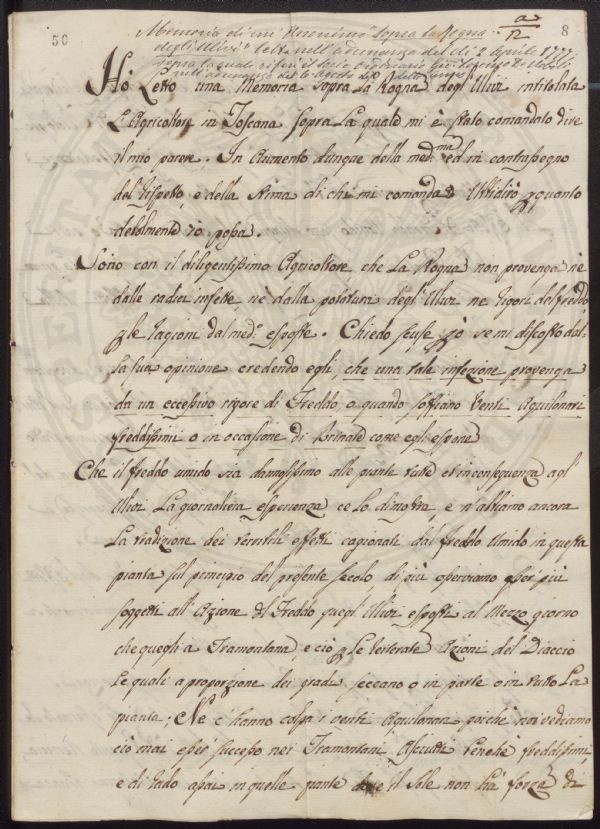 56
8
a/12
Memoria di un Anonimo sopra la Rogna
degli Ulivi letta nell'adunanza del dì 2 Aprile 1777
sopra la quale riferì il Socio Ordinario
nell'adunanza de' 6 agosto dell'anno
Ho Letto una Memoria sopra La Rogna degl'Ulivi intitolata
L'Agricoltore in Toscana sopra La quale mi è stato comandato dire
il mio parere. In Aumento dunque della med.ma ed in contrassegno
del rispetto e della stima di chi mi comanda Ubbidirò p quanto
debolmente io possa.
Sono con il diligentissimo Agricoltore che La Rogna non provenga ne
dalle radici infette ne dalla potatura degl'Ulivi ne rigori del freddo
p le ragioni dal med.o esposte. Chiedo scuse pò se mi discosto dal-
la sua opinione credendo egli, che una tale infezione provenga
da un eccessivo rigore di Freddo, o quando soffiano Venti Aquilonari
freddissimi o in occasione di Brinate come egli espone
Che il freddo umido sia dannosissimo alle piante tutte et in conseguenza agl'
Ulivi La giornaliera esperienza ce lo dimostra, e n'abbiamo ancora
La tradizione dei terribili effetti cagionati dal freddo Umido in questa
pianta sul principio del presente secolo, di più osserviamo esser più
soggetti all'Azione del Freddo quegl'Ulivi esposti al Mezzo giorno
che quegli a Tramontana e ciò p Le reiterate Azioni del Diaccio
Le quali a proporzione dei gradi seccano o in parte o in tutto La
pianta; Ne c'hanno colpa i venti Aquilonari poichè noi vediamo
ciò mai esser successo nei Tramontani Asciutti benchè freddissimi,
e di rado assai in quelle piante dove il Sole non ha forza di